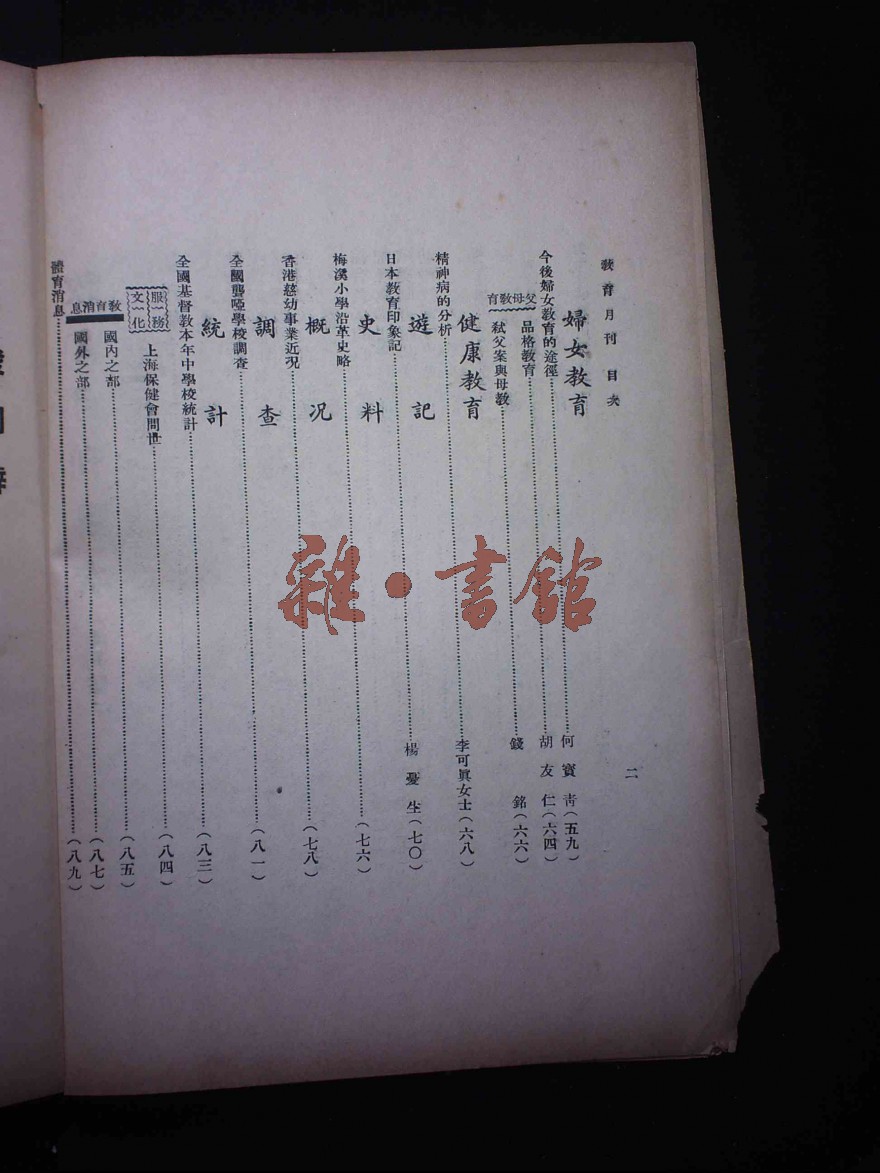 教育月刊 目次
二
婦女教育
今後婦女教育的途徑……何寶青(五九)
父母教育
品格教育……胡友仁(六四)
弑父案與母教……錢銘(六六)
健康教育
精神病的分析……李可眞女士(六八)
遊記
日本教育印象記……楊憂生(七〇)
史料
梅溪小學沿革史略……(七六)
概况
香港慈幼事業近况……(七八)
調查
全國聾啞學校調查……(八一)
統計
全國基督教本年中學校統計……(八三)
服務文化
上海保健會問世……(八四)
教育消息
國內之部……(八五)
國外之部……(八七)
體育消息……(八九)
雜·書館